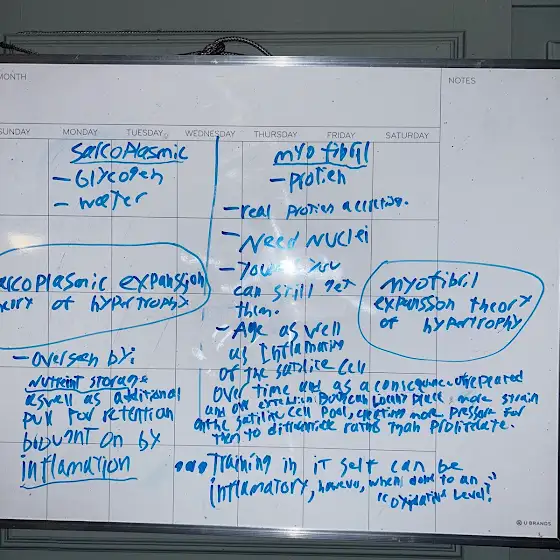 MONTH
NOTES
SUNDAY MONDAY TUESDAY WEDNESDAY THURSDAY FRIDAY SATURDAY
Sarcoplasmic
- Glycogen
- water
arcoplasmic expanssion
heory of hypertrophy
- overseen by:
Nutrient storage
as well as additional
pull for retention
brought on by
inflamation
myofibril
- protien
- real protien accreting.
- Need Nuclei
- You
can still get
them.
- Age as well
as Inflamation
of the satilite cell
over time and as a consequence
and over places more strain
on the satility cell pool, creating more pressure for
them to differentiate rather than proliferate.
myofibril
expansson theory
of hypertrophy
Training in it self can be
inflamatory, however, when done to an
"oxidative level".
U BRANDS